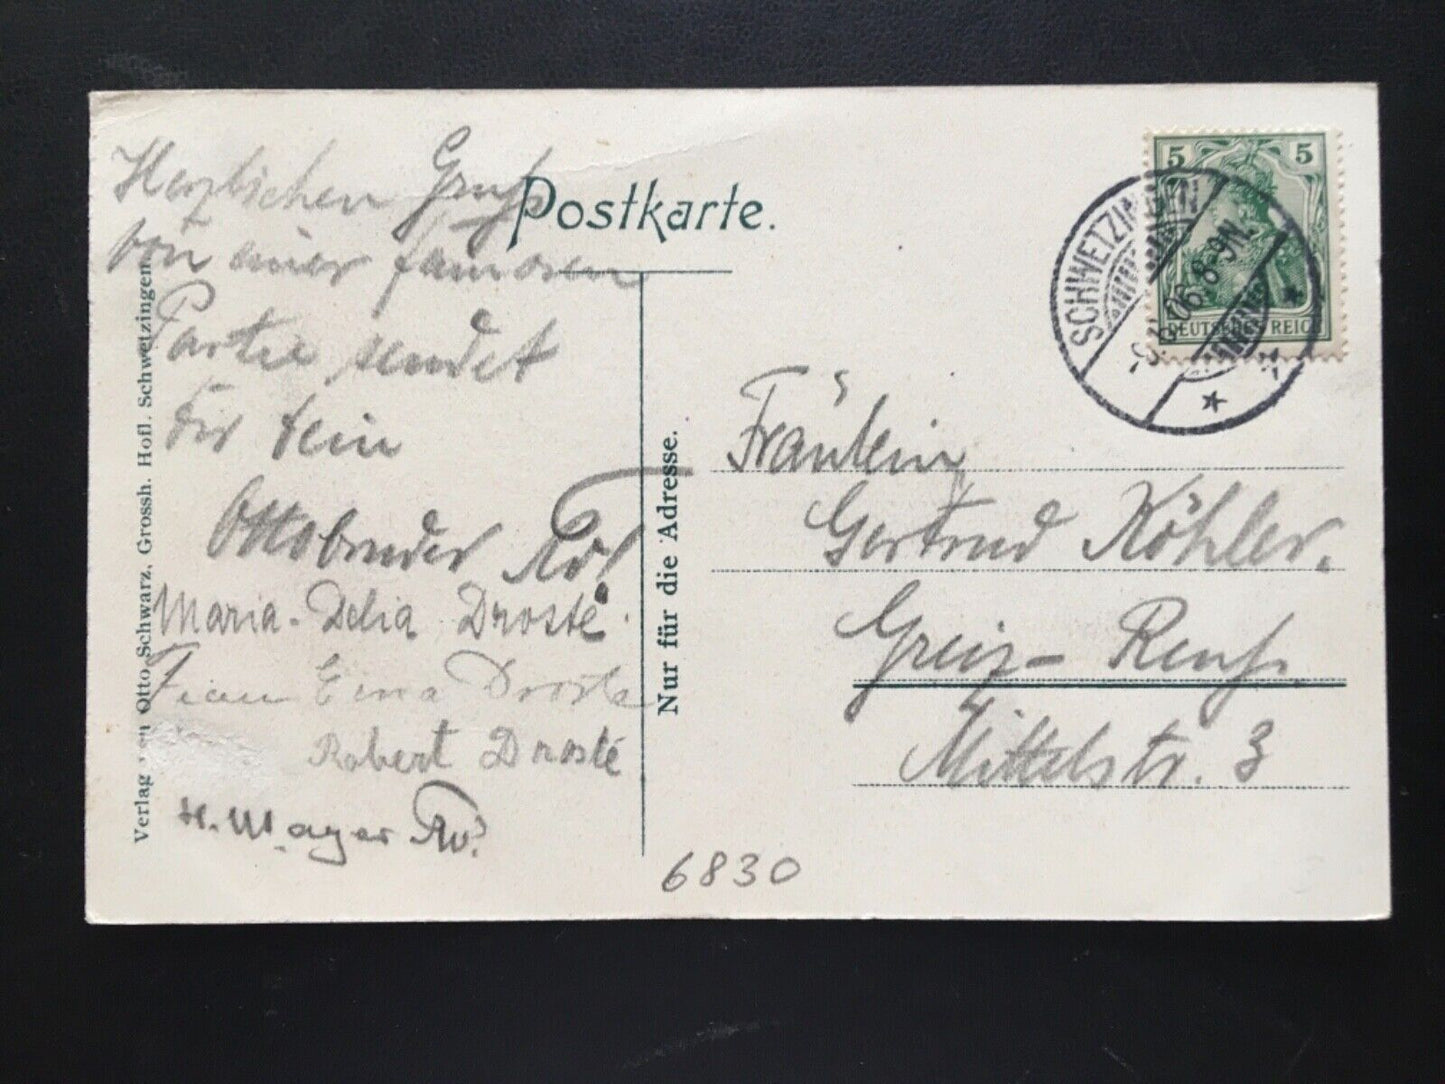 Postkarte.
Herzlichen Gruß
von einer famosen
Partie sendet
Dir Dein
Ottobruder
Maria-Delia Drosté.
Frau Drosté
Robert Drosté
H. Mayer
Verlag von Otto Schwarz, Grossh. Hofl. Schwetzingen.
Nur für die Adresse.
5 5
DEUTSCHES REICH
SCHWETZINGEN
06. 8-9N.
Fräulein
Gertrud Köhler.
Greiz-Reuß.
Mittelstr. 3
6830